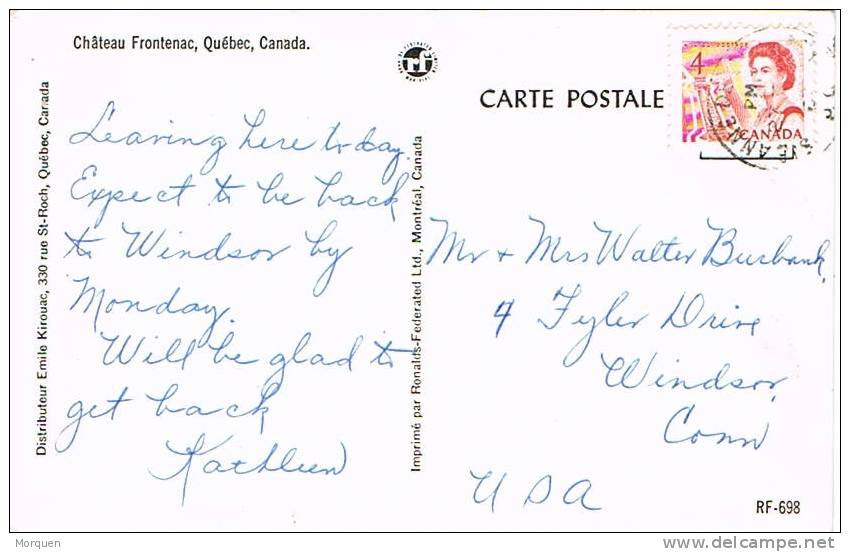 Château Frontenac, Québec, Canada.
CARTE POSTALE
4
CANADA
PM
Distributeur Emile Kirouac, 330 rue St-Roch, Québec, Canada
Leaving here today.
Expect to be back
to Windsor by
Monday.
Will be glad to
get back
Kathleen
Imprimé par Ronalds-Federated Ltd., Montréal, Canada
Mr + Mrs Walter Burbank,
4 Tyler Drive
Windsor,
Conn
USA
RF-698
Morquen
delcampe.net